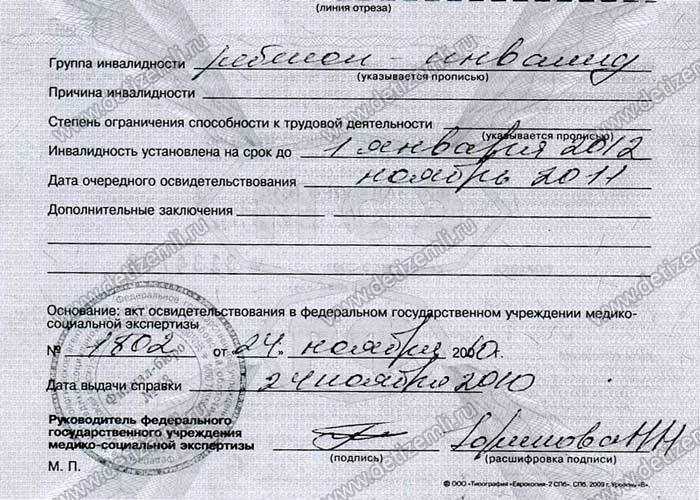 (линия отреза)
Группа инвалидности ребенок - инвалид
(указывается прописью)
Причина инвалидности
Степень ограничения способности к трудовой деятельности
(указывается прописью)
Инвалидность установлена на срок до 1 января 2012
Дата очередного освидетельствования ноябрь 2011
Дополнительные заключения
Основание: акт освидетельствования в федеральном государственном учреждении медико-
социальной экспертизы
№ 1802 от "24" ноября 2010г.
Дата выдачи справки 24 ноября 2010
Руководитель федерального
государственного учреждения
медико-социальной экспертизы
(подпись)
(расшифровка подписи)
М. П.
© ООО «Типография «Еврокопия-2 СПб». СПб. 2009 г. Уровень «В».
Федеральное
Филиал-бюро
№
www.detizemli.ru